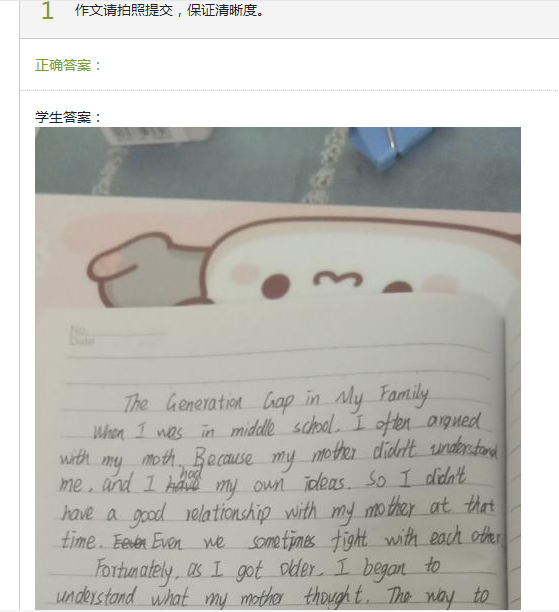 1 作文请拍照提交，保证清晰度。
正确答案：
学生答案：
No.
Date
The Generation Gap in My Family
When I was in middle school. I often argued
with my moth. Because my mother didn't understand
had
me, and I have my own ideas. So I didn't
have a good relationship with my mother at that
time. Eeven Even we sometimes fight with each other.
Fortunately, as I got older, I began to
understand what my mother thought. The way to